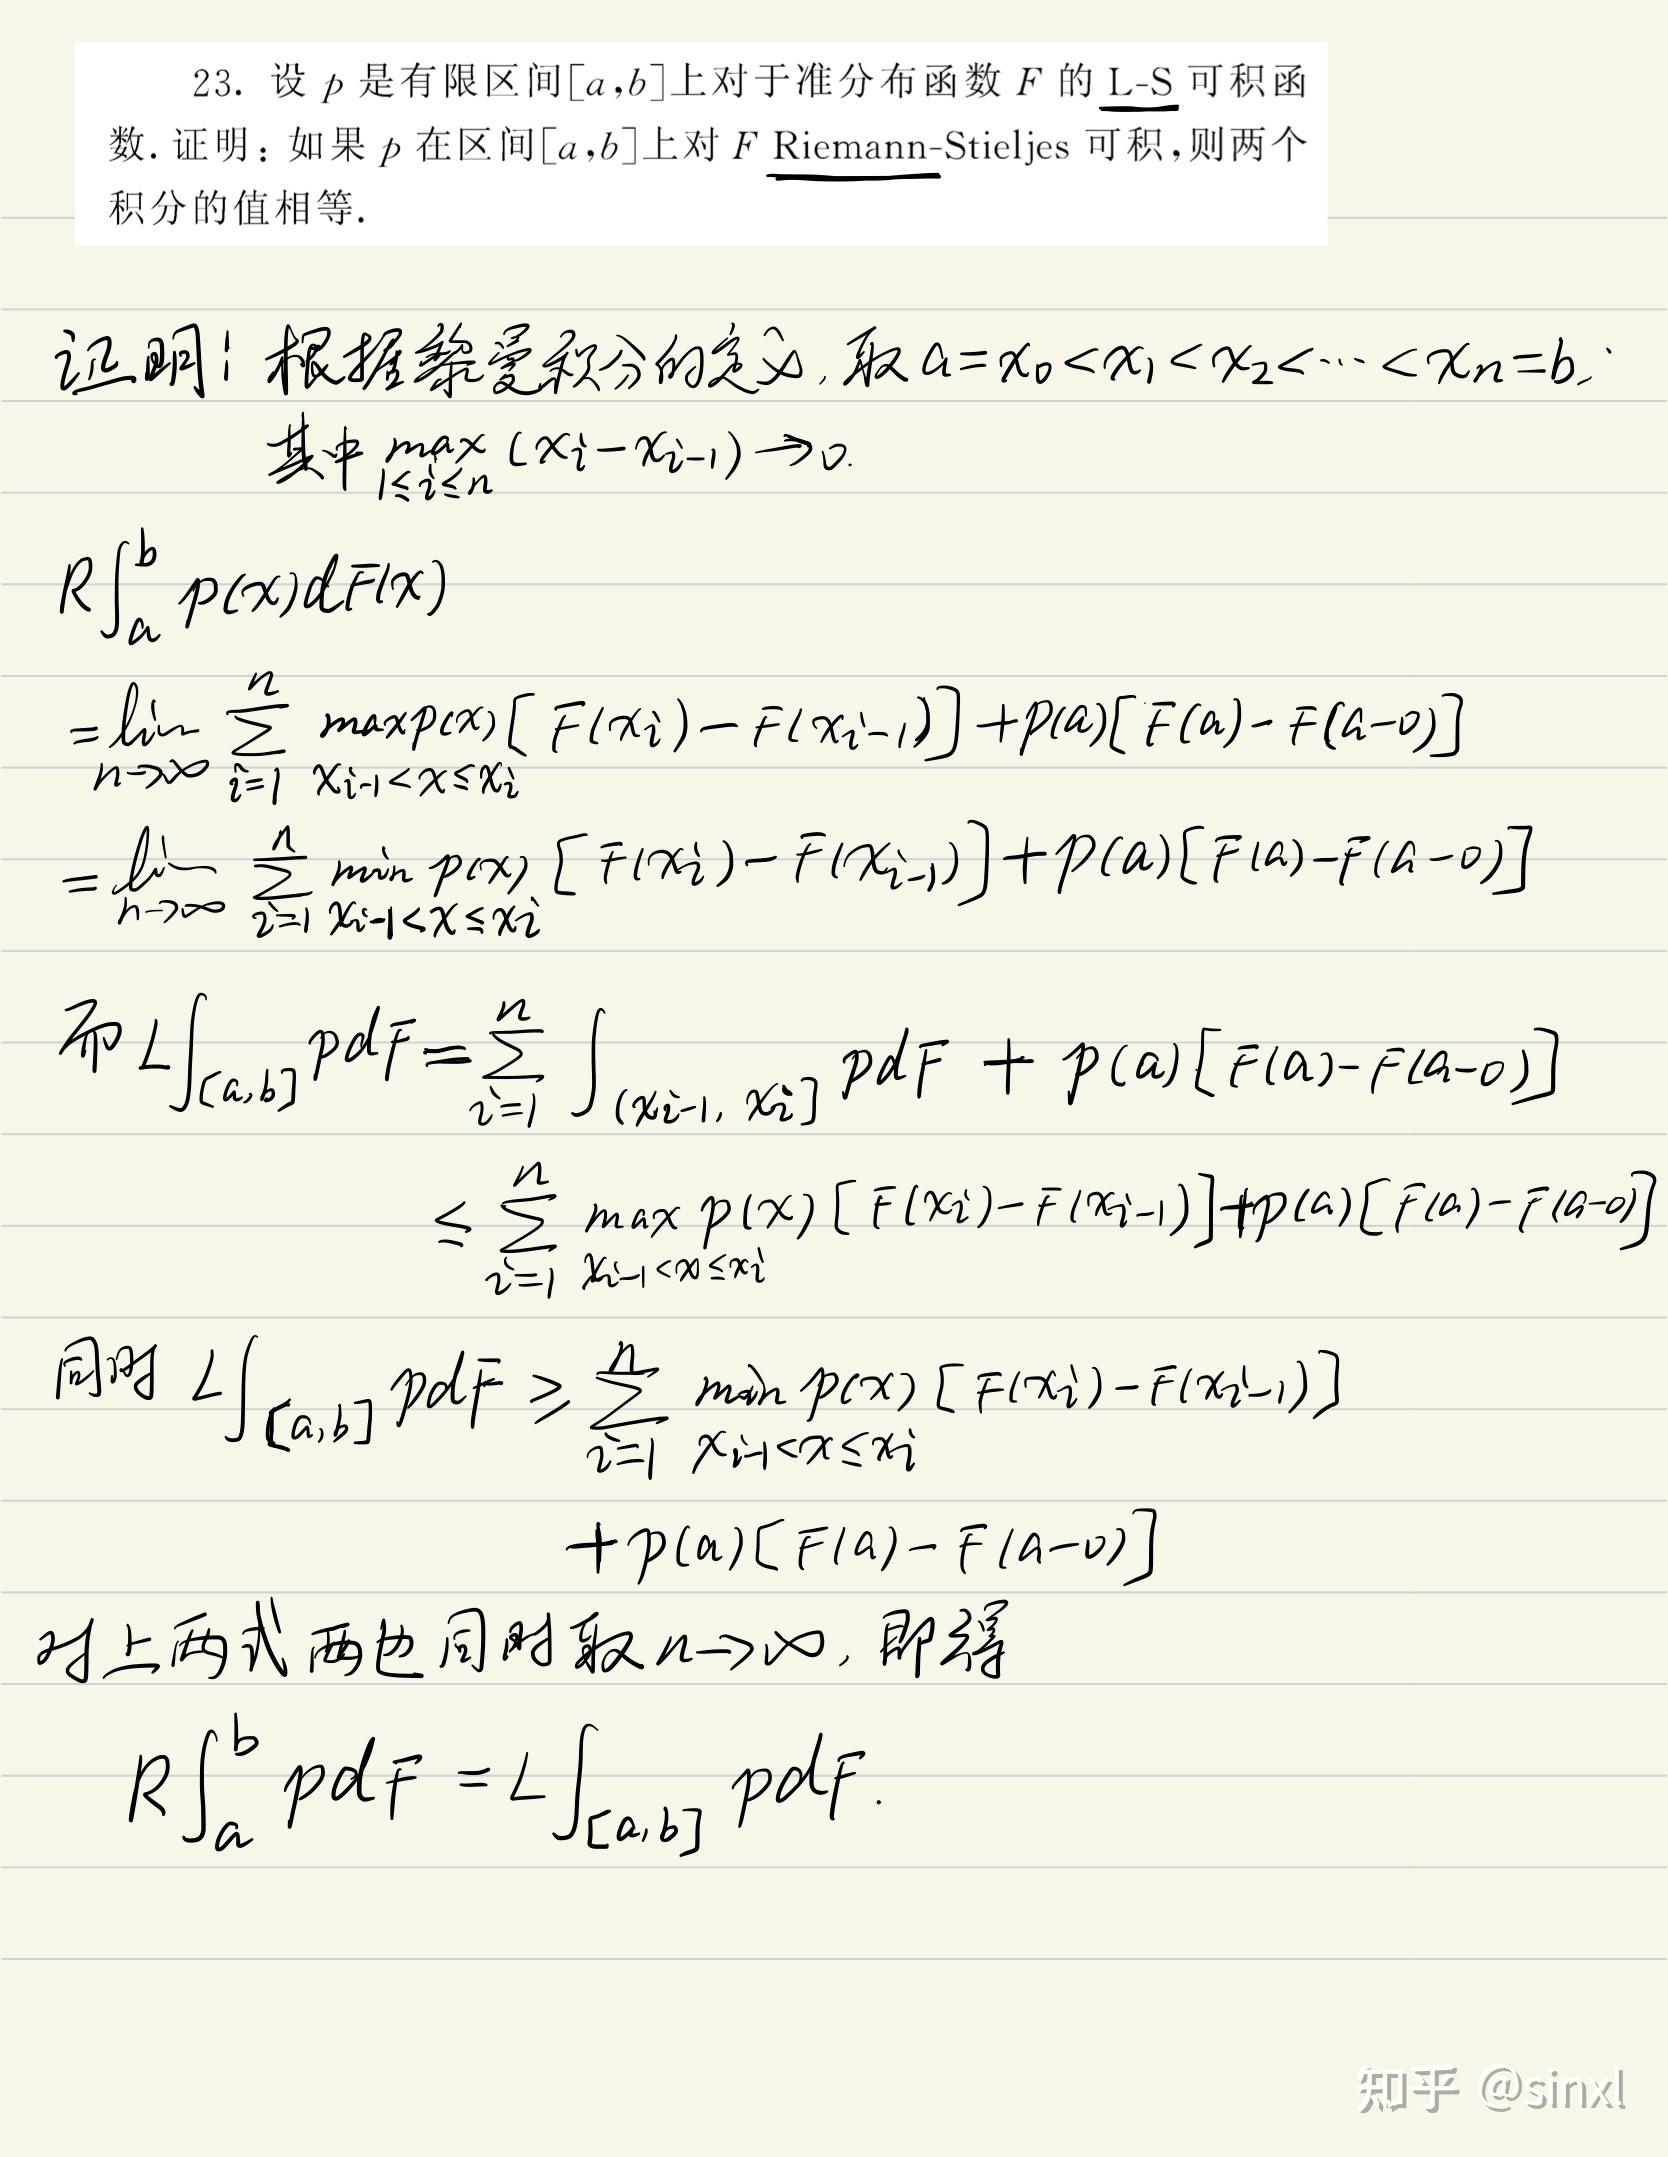 23. 设 p 是有限区间[a,b]上对于准分布函数 F 的 L-S 可积函
数. 证明: 如果 p 在区间[a,b]上对 F Riemann-Stieljes 可积,则两个
积分的值相等.
证明: 根据黎曼积分的定义, 取 a=x₀<x₁<x₂<⋯<xₙ=b,
其中 max_{1≤i≤n} (x_i-x_{i-1})→0.
R∫_a^b p(x)dF(x)
= lim_{n→∞} ∑_{i=1}^n max_{x_{i-1}<x≤x_i} p(x)[F(x_i)-F(x_{i-1})]+p(a)[F(a)-F(a-0)]
= lim_{n→∞} ∑_{i=1}^n min_{x_{i-1}<x≤x_i} p(x)[F(x_i)-F(x_{i-1})]+p(a)[F(a)-F(a-0)]
而 L∫_{[a,b]} pdF = ∑_{i=1}^n ∫_{(x_{i-1}, x_i]} pdF + p(a)[F(a)-F(a-0)]
≤ ∑_{i=1}^n max_{x_{i-1}<x≤x_i} p(x)[F(x_i)-F(x_{i-1})]+p(a)[F(a)-F(a-0)]
同时 L∫_{[a,b]} pdF ≥ ∑_{i=1}^n min_{x_{i-1}<x≤x_i} p(x)[F(x_i)-F(x_{i-1})]
+p(a)[F(a)-F(a-0)]
对上两式两边同时取 n→∞, 即得
R∫_a^b pdF = L∫_{[a,b]} pdF.
知乎 @sinxl